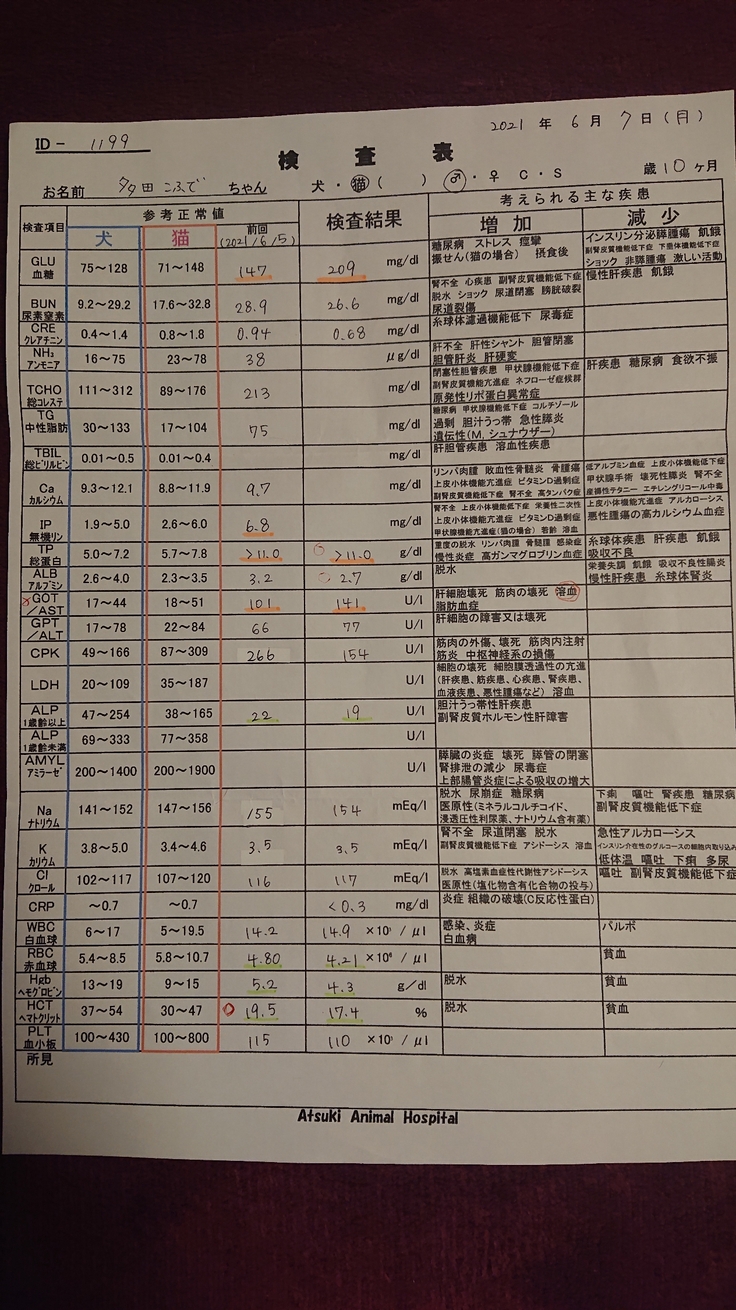 2021 年 6月 7日(月)
ID- 1199
検 査 表
お名前 多田 こふで ちゃん 犬・猫( ) ♂・♀ C・S 歳10ヶ月
検査項目 参考正常値 前回 (2021/6/5) 検査結果 考えられる主な疾患
犬 猫 増加 減少
GLU 血糖 75～128 71～148 147 209 mg/dl
糖尿病 ストレス 痙攣
振せん(猫の場合) 摂食後
インスリン分泌膵腫瘍 飢餓
副腎皮質機能低下症 下垂体機能低下症
ショック 非膵腫瘍 激しい活動
BUN 尿素窒素 9.2～29.2 17.6～32.8 28.9 26.6 mg/dl
腎不全 心疾患 副腎皮質機能低下症
脱水 ショック 尿道閉塞 膀胱破裂
尿道裂傷
慢性肝疾患 飢餓
CRE クレアチニン 0.4～1.4 0.8～1.8 0.94 0.68 mg/dl
糸球体濾過機能低下 尿毒症
NH₃ アンモニア 16～75 23～78 38 μg/dl
肝不全 肝性シャント 胆管閉塞
胆管肝炎 肝硬変
TCHO 総コレステ 111～312 89～176 213 mg/dl
閉塞性胆管疾患 甲状腺機能低下症
副腎皮質機能亢進症 ネフローゼ症候群
原発性リポ蛋白異常症
肝疾患 糖尿病 食欲不振
TG 中性脂肪 30～133 17～104 75 mg/dl
糖尿病 甲状腺機能低下症 コルチゾール
過剰 胆汁うっ帯 急性膵炎
遺伝性(M, シュナウザー)
TBIL 総ビリルビン 0.01～0.5 0.01～0.4 mg/dl
肝胆管疾患 溶血性疾患
Ca カルシウム 9.3～12.1 8.8～11.9 9.7 mg/dl
リンパ肉腫 敗血性骨髄炎 骨腫瘍
上皮小体機能亢進症 ビタミンD過剰症
副腎皮質機能低下症 腎不全 高タンパク症
低アルブミン血症 上皮小体機能低下症
甲状腺手術 壊死性膵炎 腎不全
産褥性テタニー エチレングリコール中毒
IP 無機リン 1.9～5.0 2.6～6.0 6.8 mg/dl
腎不全 上皮小体機能亢進症 栄養性二次性
上皮小体機能亢進症 ビタミンD過剰症
甲状腺機能亢進症(猫の場合) 若齢 溶血
上皮小体機能亢進症 アルカローシス
悪性腫瘍の高カルシウム血症
TP 総蛋白 5.0～7.2 5.7～7.8 >11.0 >11.0 g/dl
重度の脱水 リンパ肉腫 骨髄腫 感染症
慢性炎症 高ガンマグロブリン血症
糸球体疾患 肝疾患 飢餓
吸収不良
ALB アルブミン 2.6～4.0 2.3～3.5 3.2 2.7 g/dl
脱水
栄養失調 飢餓 吸収不良性腸炎
慢性肝疾患 糸球体腎炎
GOT /AST 17～44 18～51 101 141 U/l
肝細胞壊死 筋肉の壊死 溶血
脂肪血症
GPT /ALT 17～78 22～84 66 77 U/l
肝細胞の障害又は壊死
CPK 49～166 87～309 266 154 U/l
筋肉の外傷、壊死 筋肉内注射
筋炎 中枢神経系の損傷
LDH 20～109 35～187 U/l
細胞の壊死 細胞膜透過性の亢進
(肝疾患、筋疾患、心疾患、腎疾患、
血液疾患、悪性腫瘍など) 溶血
ALP 1歳齢以上 47～254 38～165 22 19 U/l
胆汁うっ帯性肝疾患
副腎皮質ホルモン性肝障害
ALP 1歳齢未満 69～333 77～358 U/l
AMYL アミラーゼ 200～1400 200～1900 U/l
膵臓の炎症 壊死 膵管の閉塞
腎排泄の減少 尿毒症
上部腸管炎症による吸収の増大
Na ナトリウム 141～152 147～156 155 154 mEq/l
脱水 尿崩症 糖尿病
医原性(ミネラルコルチコイド、
浸透圧性利尿薬、ナトリウム含有薬)
下痢 嘔吐 腎疾患 糖尿病
副腎皮質機能低下症
K カリウム 3.8～5.0 3.4～4.6 3.5 3.5 mEq/l
腎不全 尿道閉塞 脱水
副腎皮質機能低下症 アシドーシス 溶血
急性アルカローシス
インスリン介在性のグルコースの細胞内取り込み
低体温 嘔吐 下痢 多尿
Cl クロール 102～117 107～120 116 117 mEq/l
脱水 高塩素血症性代謝性アシドーシス
医原性(塩化物含有化合物の投与)
嘔吐 副腎皮質機能低下症
CRP ～0.7 ～0.7 <0.3 mg/dl
炎症 組織の破壊(C反応性蛋白)
WBC 白血球 6～17 5～19.5 14.2 14.9 ×10³ / μl
感染、炎症
白血病
パルボ
RBC 赤血球 5.4～8.5 5.8～10.7 4.80 4.21 ×10⁶ / μl 貧血
Hgb ヘモグロビン 13～19 9～15 5.2 4.3 g/dl 脱水 貧血
HCT ヘマトクリット 37～54 30～47 19.5 17.4 % 脱水 貧血
PLT 血小板 100～430 100～800 115 110 ×10³ / μl
所見
Atsuki Animal Hospital